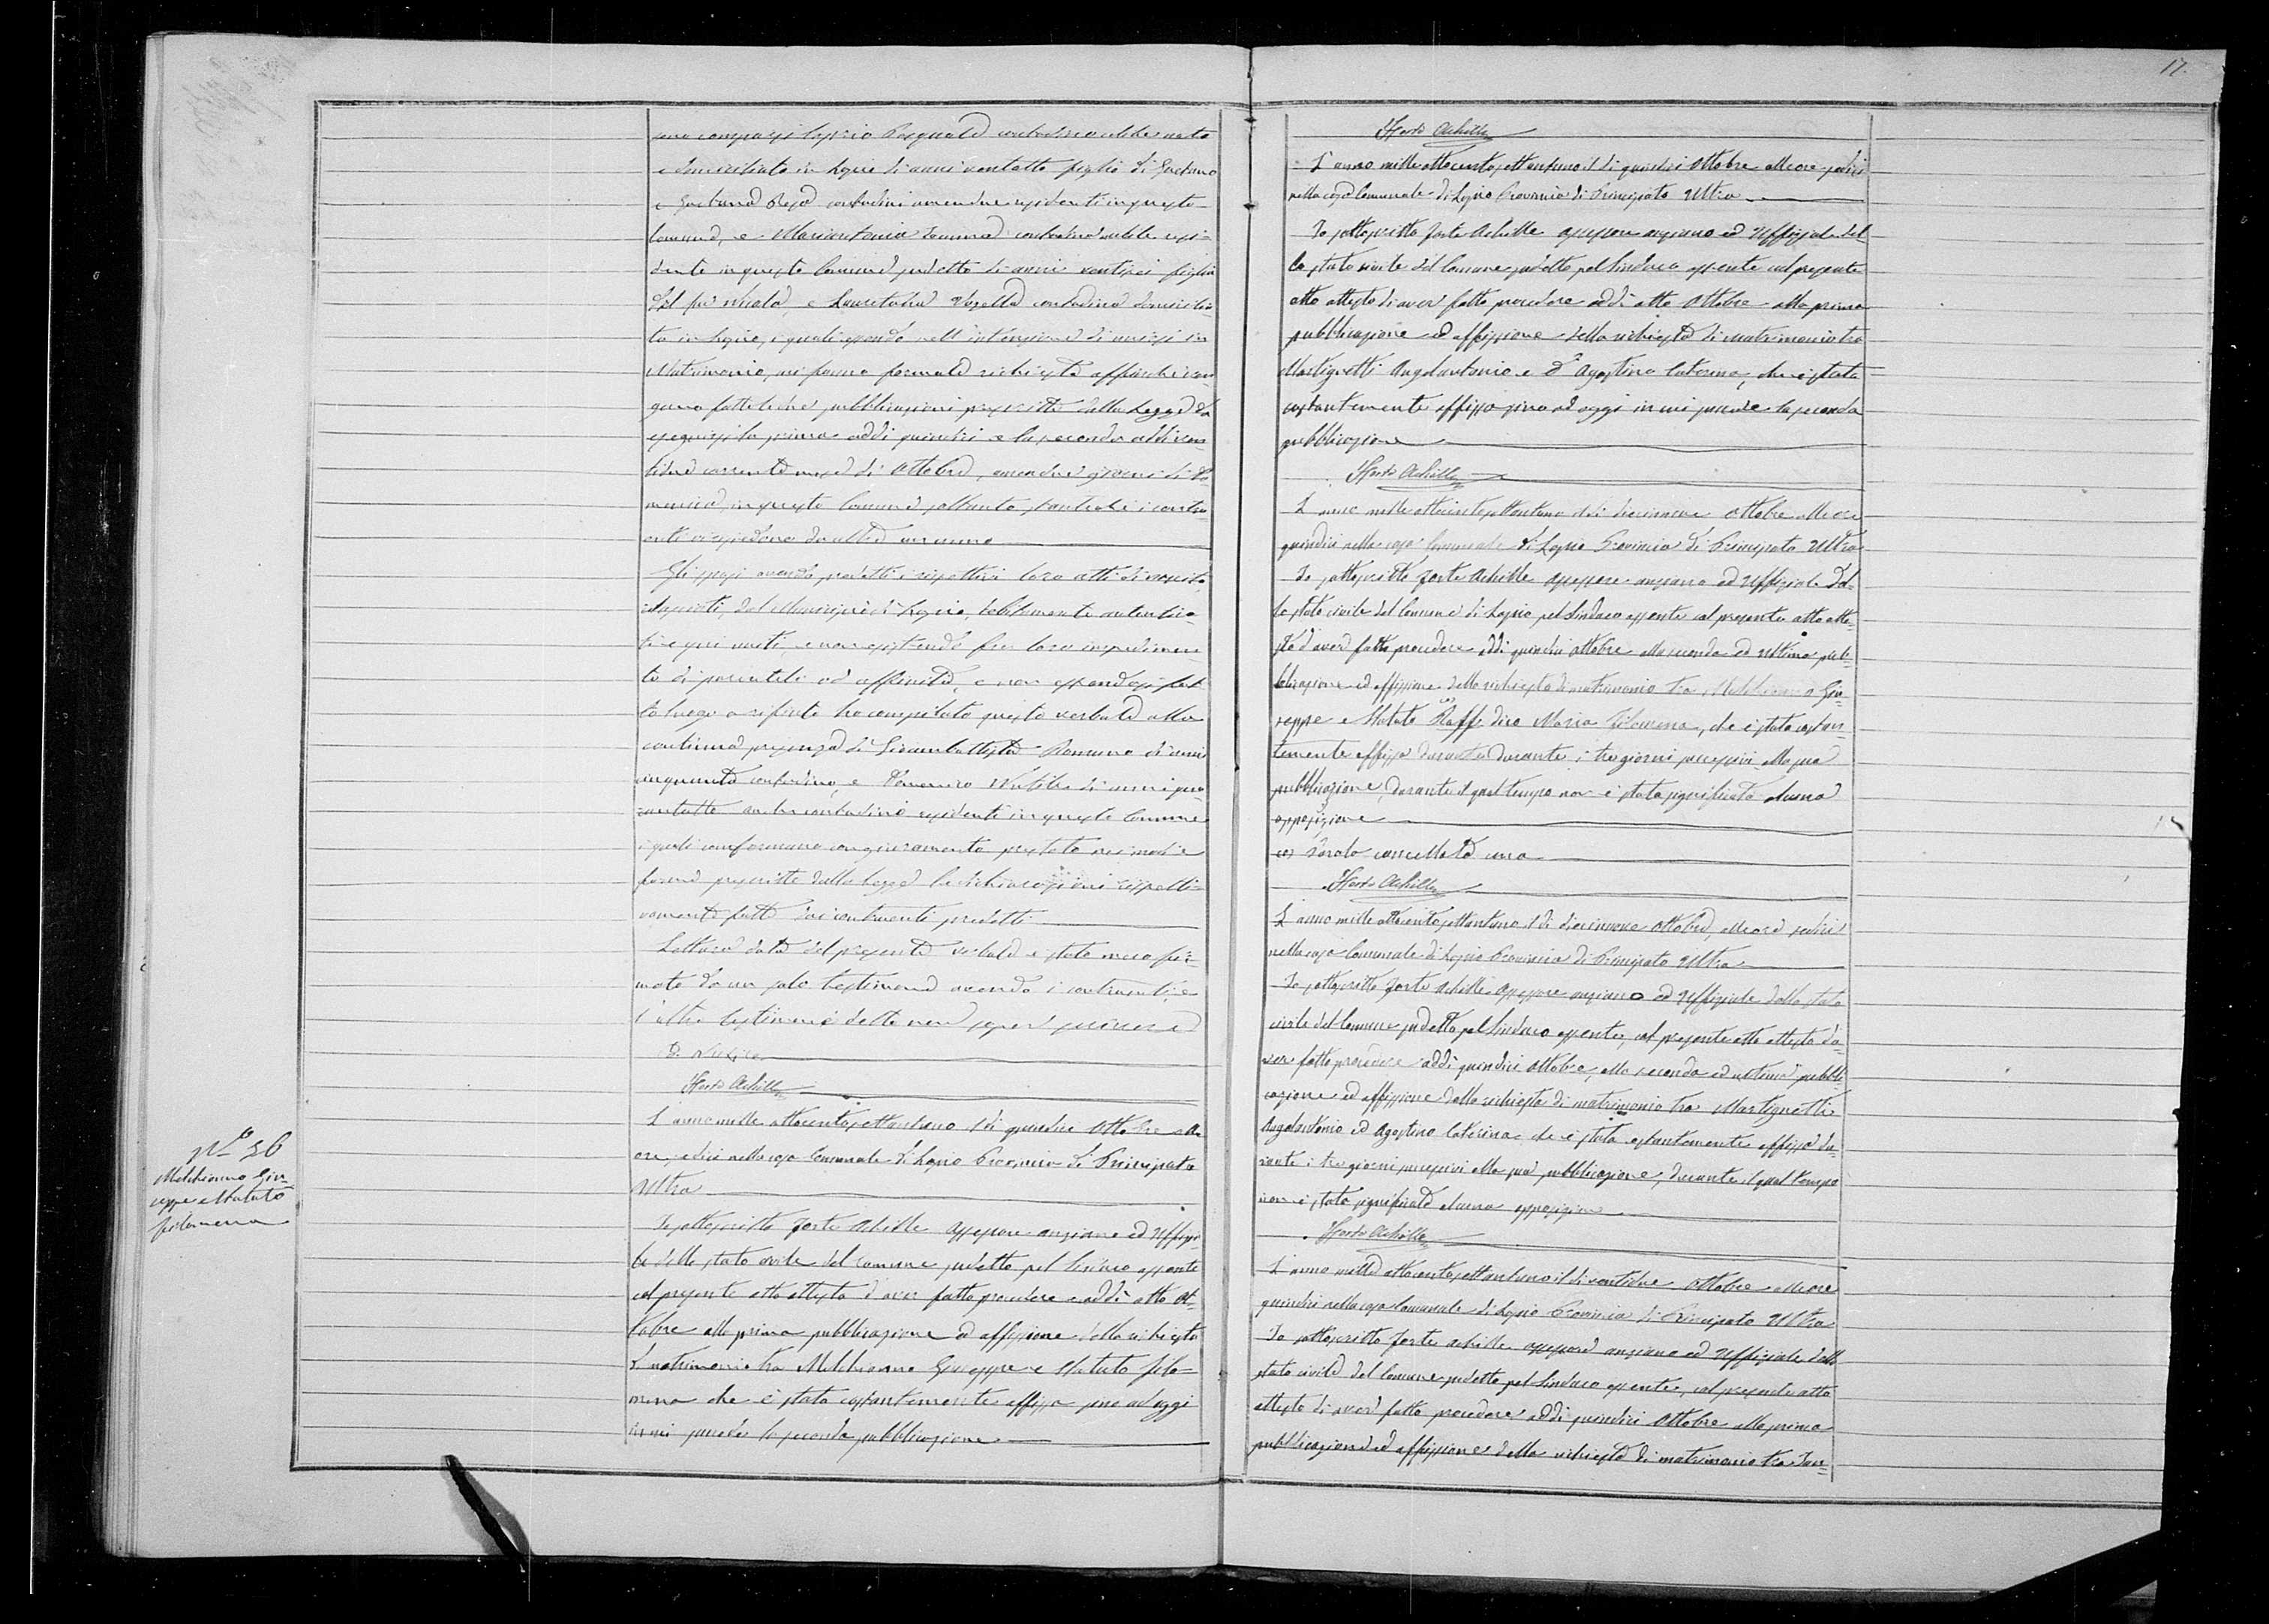 17.
sono comparsi Capria Pasquale contadino celibe nato
e domiciliato in Lapio di anni ventotto figlio di Gaetano
e Gaetana contadini amendue residenti in questo
Comune, e Mariantonia contadina nubile resi=
dente in questo Comune sudetto di anni ventisei figlia
del fu Nicola, e contadina domicilia=
ta in Lapio, i quali essendo nell'intenzione di unirsi in
Matrimonio, mi fanno formale richiesta affinché ven=
gano fatte le due pubblicazioni prescritte dalla Legge da
eseguirsi la prima addi quindici e la seconda addi ven=
tidue corrente mese di Ottobre, amendue giorni di Do=
menica, in questo Comune soltanto, stanteché i contra=
enti vi risiedono da oltre un anno
Gli sposi avendo prodotti i rispettivi loro atti di nascita
rilasciati dal Municipio di Lapio, debitamente autentica=
ti e qui uniti, e non esistendo fra loro impedimen=
to di parentela od affinità, e non essendosi fat
to luogo a rifiuto ho compilato questo verbale alla
continua presenza di Giambattista Romano di anni
cinquanta contadino, e Domenico di anni qua
rantotto ambo contadini residenti in questo Comune
i quali confermano con giuramento prestato nei modi e
forme prescritte dalla Legge le dichiarazioni rispetti=
vamente fatte dai contraenti predetti
Lettura data del presente verbale è stato meco fir=
mato da un solo testimone avendo i contraenti, e
l'altro testimone detto non saper scrivere
D.
Forte Achille
N.º 36
Melchionno Giu=
seppe e Statuto
Filomena
L'anno mille ottocentosettantuno il dì quindici Ottobre alle
ore sedici nella casa Comunale di Lapio Provincia di Principato
Ultra
Io sottoscritto Forte Achille Assessore anziano ed Uffizia=
le dello stato civile del Comune sudetto pel Sindaco assente
col presente atto attesto d'aver fatto procedere addì otto Ot=
tobre alla prima pubblicazione ed affissione della richiesta
di matrimonio tra Melchionno Giuseppe e Statuto Filo=
mena che è stata costantemente affissa sino ad oggi
in cui procede la seconda pubblicazione
Forte Achille
L'anno mille ottocentosettantuno il dì quindici Ottobre alle ore sedici
nella casa Comunale di Lapio Provincia di Principato Ultra
Io sottoscritto Forte Achille assessore anziano ed Uffiziale del=
lo stato civile del Comune sudetto pel Sindaco assente col presente
atto attesto di aver fatto procedere addì otto Ottobre alla prima
pubblicazione ed affissione della richiesta di matrimonio tra
Martignetti Angelantonio e D'Agostino Caterina, che è stata
costantemente affissa sino ad oggi in cui procede la seconda
pubblicazione
Forte Achille
L'anno mille ottocentosettantuno il dì diecinnove Ottobre alle ore
quindici nella casa Comunale di Lapio Provincia di Principato Ultra
Io sottoscritto Forte Achille Assessore anziano ed Uffiziale del=
lo stato civile del Comune di Lapio pel Sindaco assente col presente atto atte=
sto d'aver fatto procedere addì quindici Ottobre alla seconda ed ultima pub=
blicazione ed affissione della richiesta di matrimonio tra Melchionno Giu=
seppe e Statuto Raff dico Maria Filomena, che è stata costan=
temente affissa durante i tre giorni successivi alla sua
pubblicazione, durante il qual tempo non è stata significata alcuna
opposizione
(a) Parola cancellata una
Forte Achille
L'anno mille ottocentosettantuno il dì diecinnove Ottobre, alle ore sedici
nella casa Comunale di Lapio Provincia di Principato Ultra
Io sottoscritto Forte Achille Assessore anziano ed Uffiziale dello stato
civile del Comune sudetto pel Sindaco assente, col presente atto attesto d'a=
ver fatto procedere addì quindici Ottobre, alla seconda ed ultima pubbli=
cazione ed affissione della richiesta di matrimonio tra Martignetti
Angelantonio ed Agostino Caterina che è stata costantemente affissa du=
rante i tre giorni successivi alla sua pubblicazione, durante il qual tempo
non è stata significata alcuna opposizione
Forte Achille
L'anno mille ottocentosettantuno il dì ventidue Ottobre alle ore
quindici nella casa Comunale di Lapio Provincia di Principato Ultra
Io sottoscritto Forte Achille assessore anziano ed Uffiziale dello
stato civile del Comune sudetto pel Sindaco assente, col presente atto
attesto di aver fatto procedere addì quindici Ottobre alla prima
pubblicazione ed affissione della richiesta di matrimonio tra